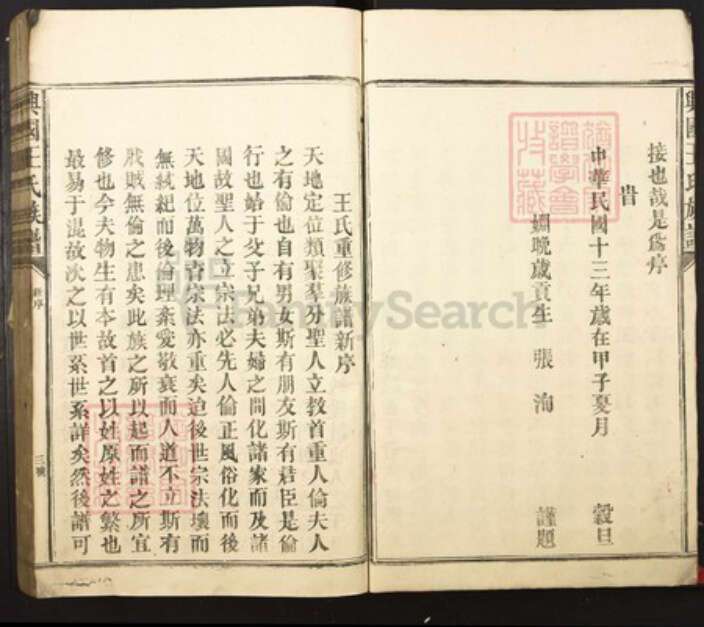 接也哉是為序
旹
中華民國十三年歲在甲子夏月 穀旦
姻晚歲貢生 張洵 謹題
王氏重修族譜新序
天地定位類聚羣分聖人立教首重人倫夫人
之有倫也自有男女斯有朋友斯有君臣是倫
行也始于父子兄弟夫婦之間化諸家而及諸
國故聖人之立宗法必先人倫正風俗化而後
天地位萬物育宗法亦重矣迨後世宗法壞而
無統紀而後倫理紊愛敬衰而人道不立斯有
戕賊無倫之患矣此族之所以起而譜之所宜
修也今夫物生有本故首之以姓原姓之繁也
最易于混故次之以世系世系詳矣然後譜可
興國王氏族譜
新序
三號
興國王氏族譜
FamilySearch